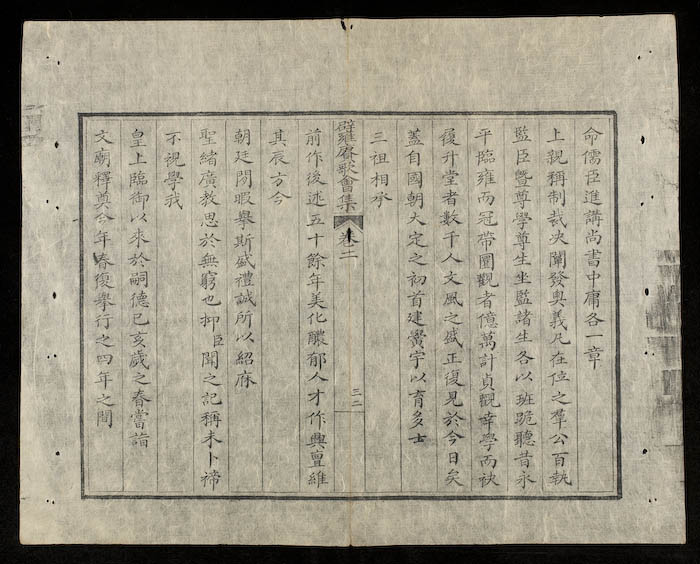 命儒臣進講尚書中庸各一章
上親稱制裁決闡發奥義凡在位之羣公百執
監臣曁尊學尊生坐監諸生各以班跪聽昔永
平臨雍而冠帶圜觀者億萬計貞觀幸學而袂
復升堂者數千人文風之盛正復見於今日矣
蓋自國朝大定之初首建黌宇以育多士
三祖相承
辟雍賡歌會集 卷二 三二
前作後述五十餘年美化醲郁人才作興亶維
其辰方今
朝廷閒暇舉斯盛禮誠所以紹庥
聖緒廣教思於無窮也抑臣聞之記稱未卜禘
不視學我
皇上臨御以來於嗣德己亥歲之春當詣
文廟釋奠今年春復舉行之四年之間